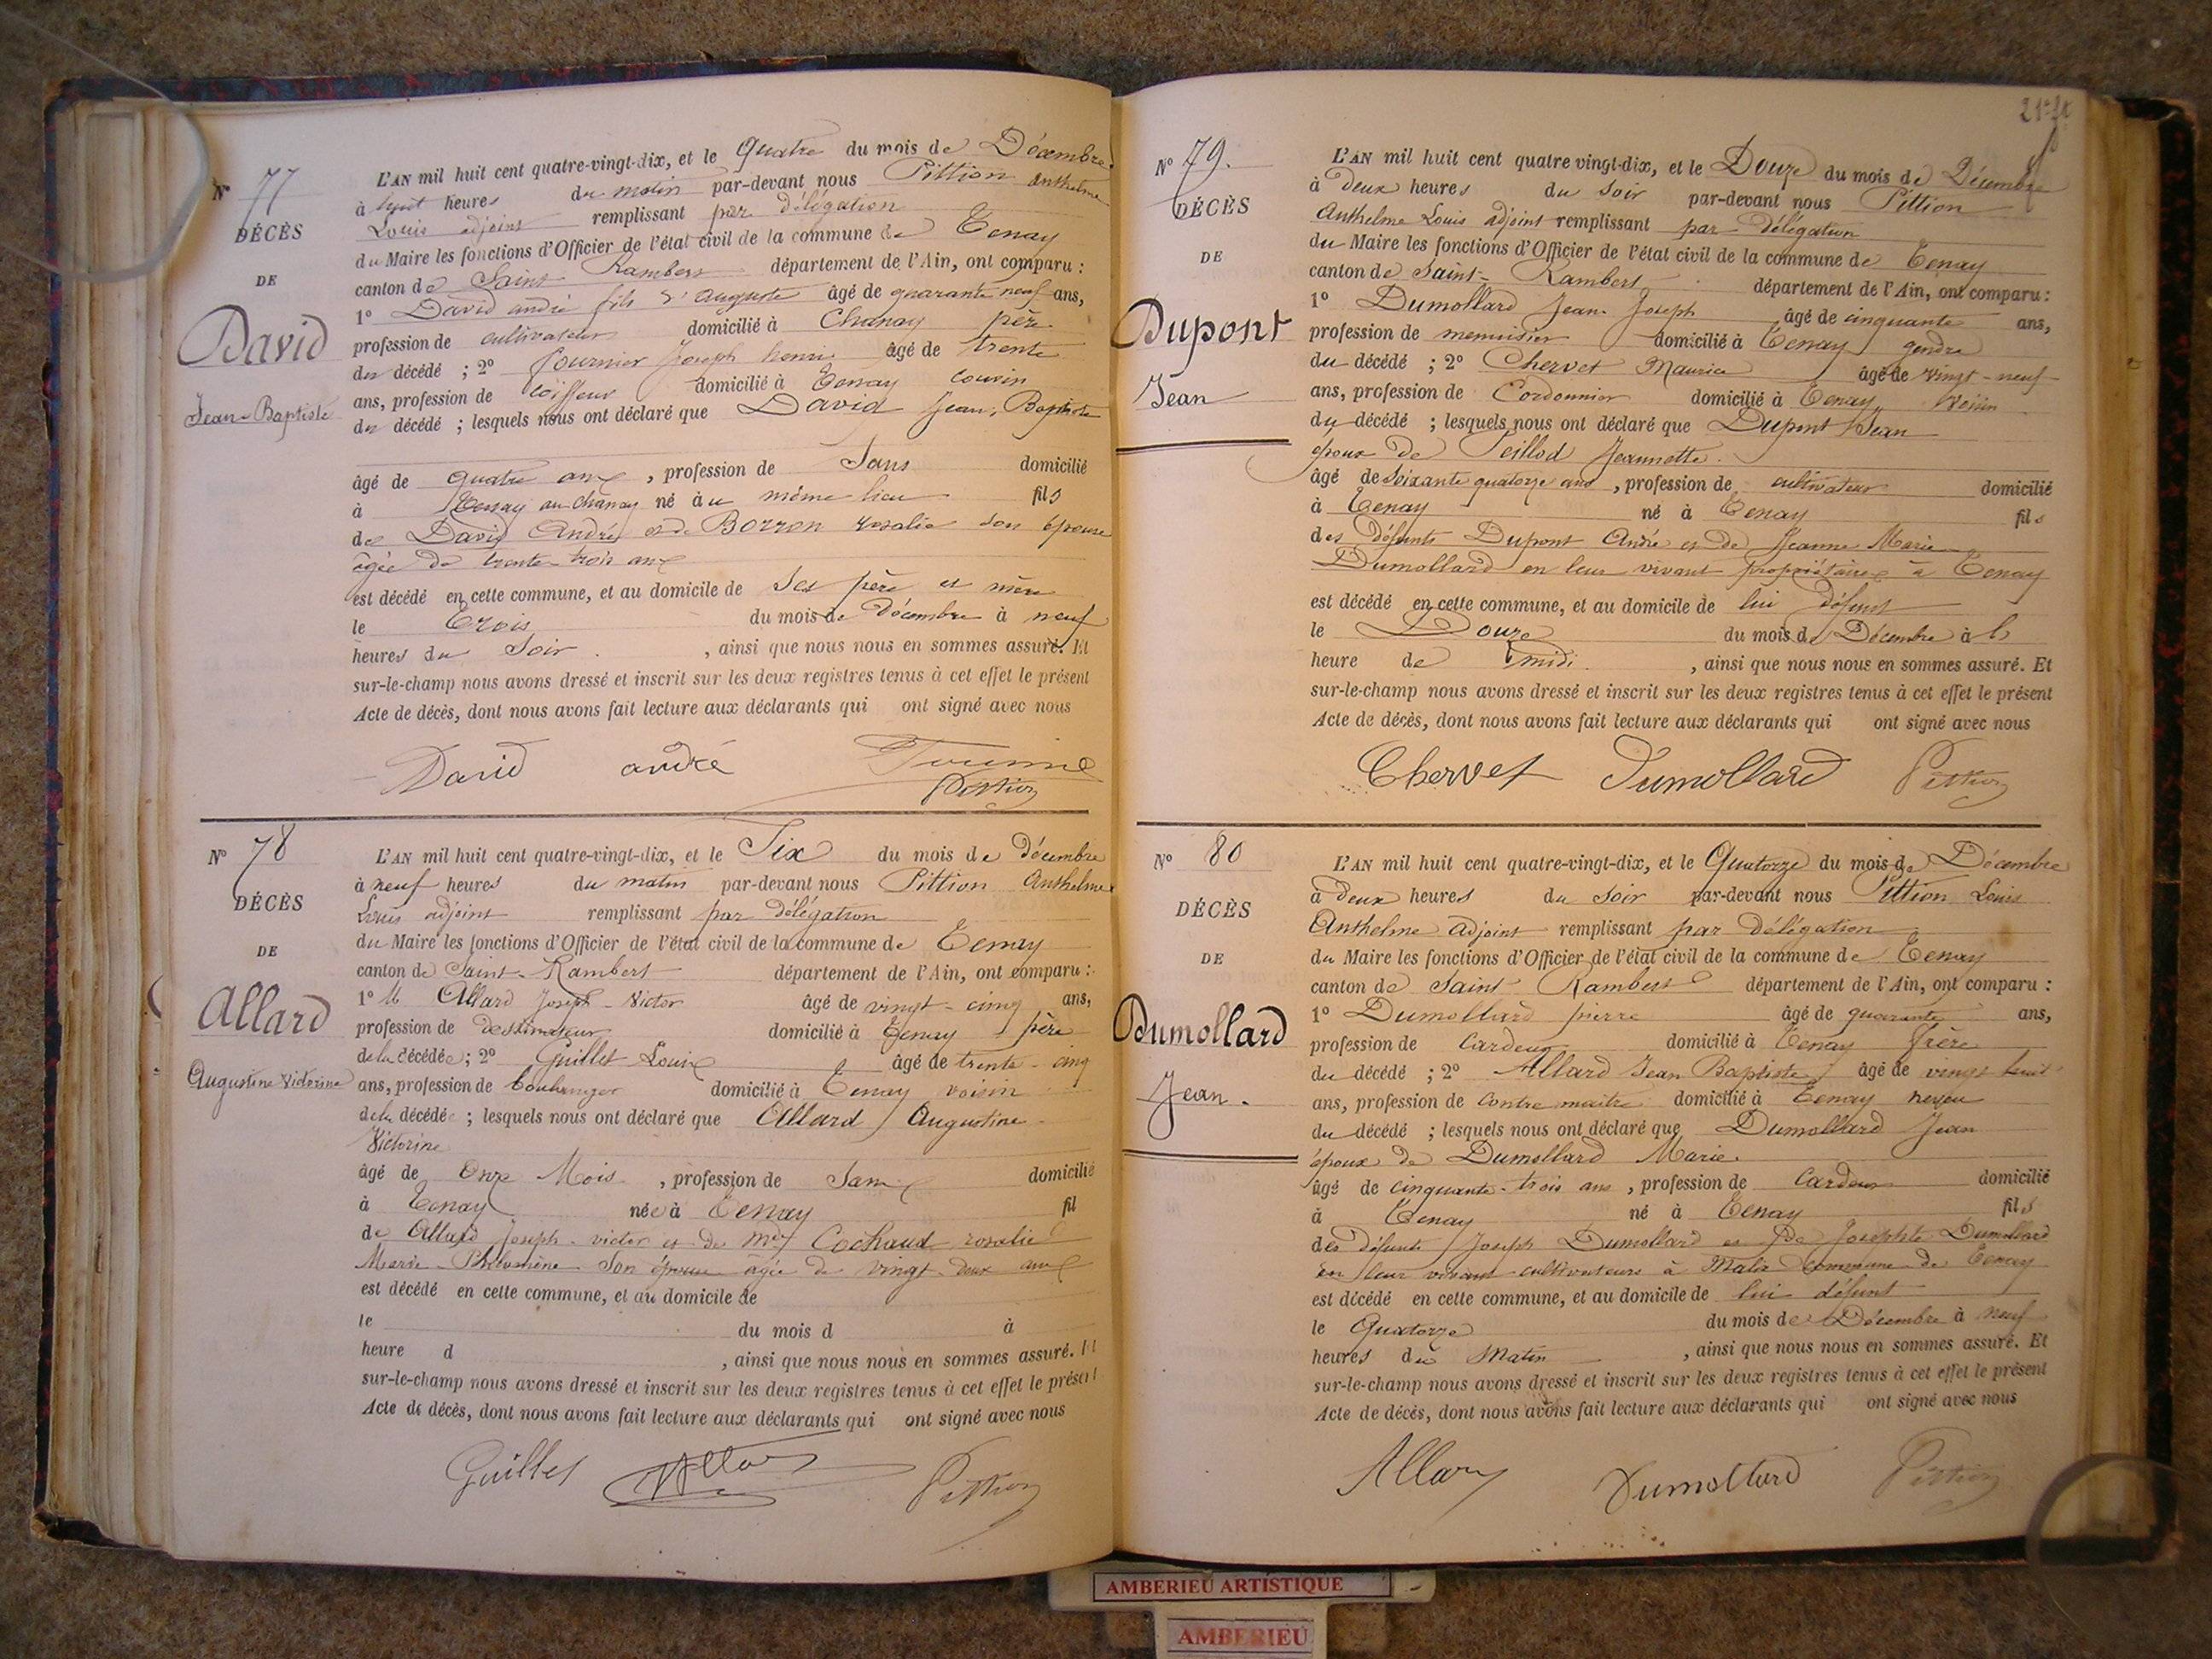 N° 77
DÉCÈS
DE
David
Jean-Baptiste
L'AN mil huit cent quatre-vingt-dix, et le Quatre du mois de Décembre
à huit heures du matin par-devant nous Pittion Anthelme
Louis adjoint remplissant par délégation
du Maire les fonctions d'Officier de l'état civil de la commune de Tenay
canton de Saint Rambert département de l'Ain, ont comparu :
1° David andré fils d'auguste âgé de quarante neuf ans,
profession de cultivateur domicilié à Chanay père
du décédé ; 2° fournier Joseph henri âgé de trente
ans, profession de coiffeur domicilié à Tenay cousin
du décédé ; lesquels nous ont déclaré que David Jean, Baptiste
âgé de quatre ans , profession de Sans domicilié
à Tenay au chanay né à u même lieu fils
de David André et de Borron rosalie son épouse
âgée de trente-trois ans
est décédé en cette commune, et au domicile de Ses père et mère
le Trois du mois de Décembre à neuf
heures du Soir , ainsi que nous nous en sommes assuré. Et
sur-le-champ nous avons dressé et inscrit sur les deux registres tenus à cet effet le présent
Acte de décès, dont nous avons fait lecture aux déclarants qui ont signé avec nous
David andré
Pittion
N° 78
DÉCÈS
DE
Allard
Augustine Victorine
L'AN mil huit cent quatre-vingt-dix, et le Six du mois de décembre
à neuf heures du matin par-devant nous Pittion Anthelme
Louis adjoint remplissant par délégation
du Maire les fonctions d'Officier de l'état civil de la commune de Tenay
canton de Saint-Rambert département de l'Ain, ont comparu :
1° M Allard Joseph-Victor âgé de vingt-cinq ans,
profession de dessinateur domicilié à Tenay père
de la décédée ; 2° Guillet Louis âgé de trente-cinq
ans, profession de boulanger domicilié à Tenay voisin
de la décédée ; lesquels nous ont déclaré que Allard Augustine
Victorine
âgé de Onze Mois , profession de Sans domicilié
à Tenay née à Tenay fil
de Allard Joseph-victor et de Cochaud rosalie
Marie-Philomène Son épouse âgée de vingt-deux ans
est décédé en cette commune, et au domicile de
le du mois d à
heure d , ainsi que nous nous en sommes assuré. Et
sur-le-champ nous avons dressé et inscrit sur les deux registres tenus à cet effet le présent
Acte de décès, dont nous avons fait lecture aux déclarants qui ont signé avec nous
Guillet Allard Pittion
N° 79.
DÉCÈS
DE
Dupont
Jean
L'AN mil huit cent quatre vingt-dix, et le Douze du mois de Décembre
à deux heures du Soir par-devant nous Pittion
Anthelme Louis adjoint remplissant par délégation
du Maire les fonctions d'Officier de l'état civil de la commune de Tenay
canton de Saint-Rambert département de l'Ain, ont comparu :
1° Dumollard Jean-Joseph âgé de cinquante ans,
profession de menuisier domicilié à Tenay gendre
du décédé ; 2° Chervet Maurice âgé de vingt-neuf
ans, profession de Cordonnier domicilié à Tenay Voisin
du décédé ; lesquels nous ont déclaré que Dupont Jean
époux de Peillod Jeannette.
âgé de Soixante quatorze ans , profession de cultivateur domicilié
à Tenay né à Tenay fils
des défunts Dupont André et de Jeanne Marie
Dumollard en leur vivant propriétaires à Tenay
est décédé en cette commune, et au domicile de lui défunt
le Douze du mois de Décembre à
heure de midi , ainsi que nous nous en sommes assuré. Et
sur-le-champ nous avons dressé et inscrit sur les deux registres tenus à cet effet le présent
Acte de décès, dont nous avons fait lecture aux déclarants qui ont signé avec nous
Chervet Dumollard Pittion
N° 80
DÉCÈS
DE
Dumollard
Jean.
L'AN mil huit cent quatre-vingt-dix, et le Quatorze du mois de Décembre
à deux heures du Soir par-devant nous Pittion Louis
Anthelme adjoint remplissant par délégation
du Maire les fonctions d'Officier de l'état civil de la commune de Tenay
canton de Saint Rambert département de l'Ain, ont comparu :
1° Dumollard pierre âgé de quarante ans,
profession de Cardeur domicilié à Tenay frère
du décédé ; 2° Allard Jean Baptiste âgé de vingt huit
ans, profession de Contre maitre domicilié à Tenay neveu
du décédé ; lesquels nous ont déclaré que Dumollard Jean
époux de Dumollard Marie.
âgé de cinquante-trois ans , profession de Cardeur domicilié
à Tenay né à Tenay fils
des défunts Joseph Dumollard et de Josephte Dumollard
en leur vivant cultivateurs à Malix commune de Tenay
est décédé en cette commune, et au domicile de lui défunt
le Quatorze du mois de Décembre à neuf
heures du Matin , ainsi que nous nous en sommes assuré. Et
sur-le-champ nous avons dressé et inscrit sur les deux registres tenus à cet effet le présent
Acte de décès, dont nous avons fait lecture aux déclarants qui ont signé avec nous
Allard Dumollard Pittion
AMBERIEU ARTISTIQUE
AMBERIEU